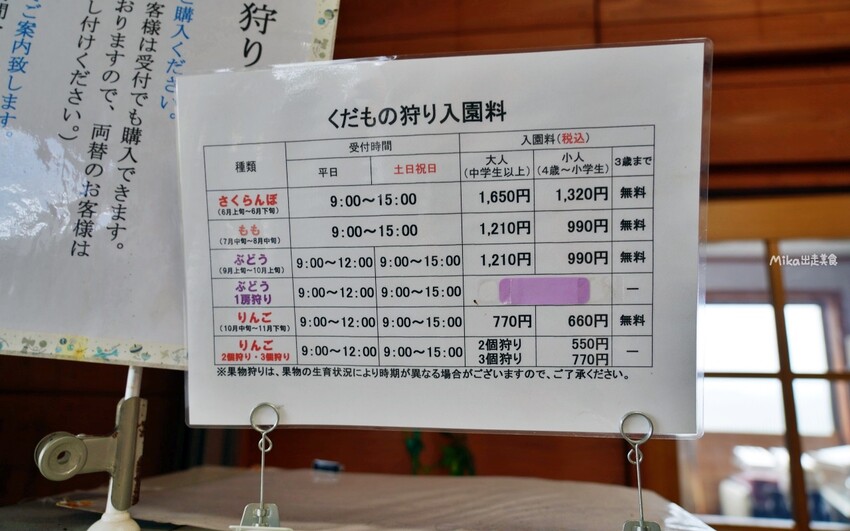 狩り
ご購入ください。
客様は受付でも購入できます。
おりますので、両替のお客様は
し付けください。）
ご案内致します。
くだもの狩り入園料
種類 受付時間 入園料(税込)
平日 土日祝日 大人(中学生以上) 小人(4歳～小学生) 3歳まで
さくらんぼ(6月上旬～6月下旬) 9:00～15:00 1,650円 1,320円 無料
もも(7月中旬～8月中旬) 9:00～15:00 1,210円 990円 無料
ぶどう(9月上旬～10月上旬) 9:00～12:00 9:00～15:00 1,210円 990円 無料
ぶどう1房狩り 9:00～12:00 9:00～15:00 ―
りんご(10月中旬～11月下旬) 9:00～12:00 9:00～15:00 770円 660円 無料
りんご2個狩り・3個狩り 9:00～12:00 9:00～15:00 2個狩り 550円 3個狩り 770円 ―
※果物狩りは、果物の生育状況により時期が異なる場合がございますので、ご了承ください。
Mika出走美食